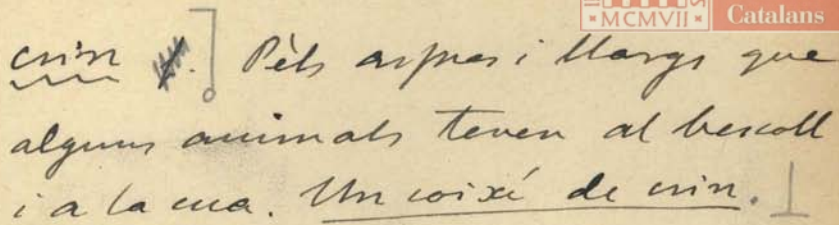 MCMVII Catalans
crin . Pèls aspres i llargs que
alguns animals tenen al bescoll
i a la cua. Un coixí de crin.